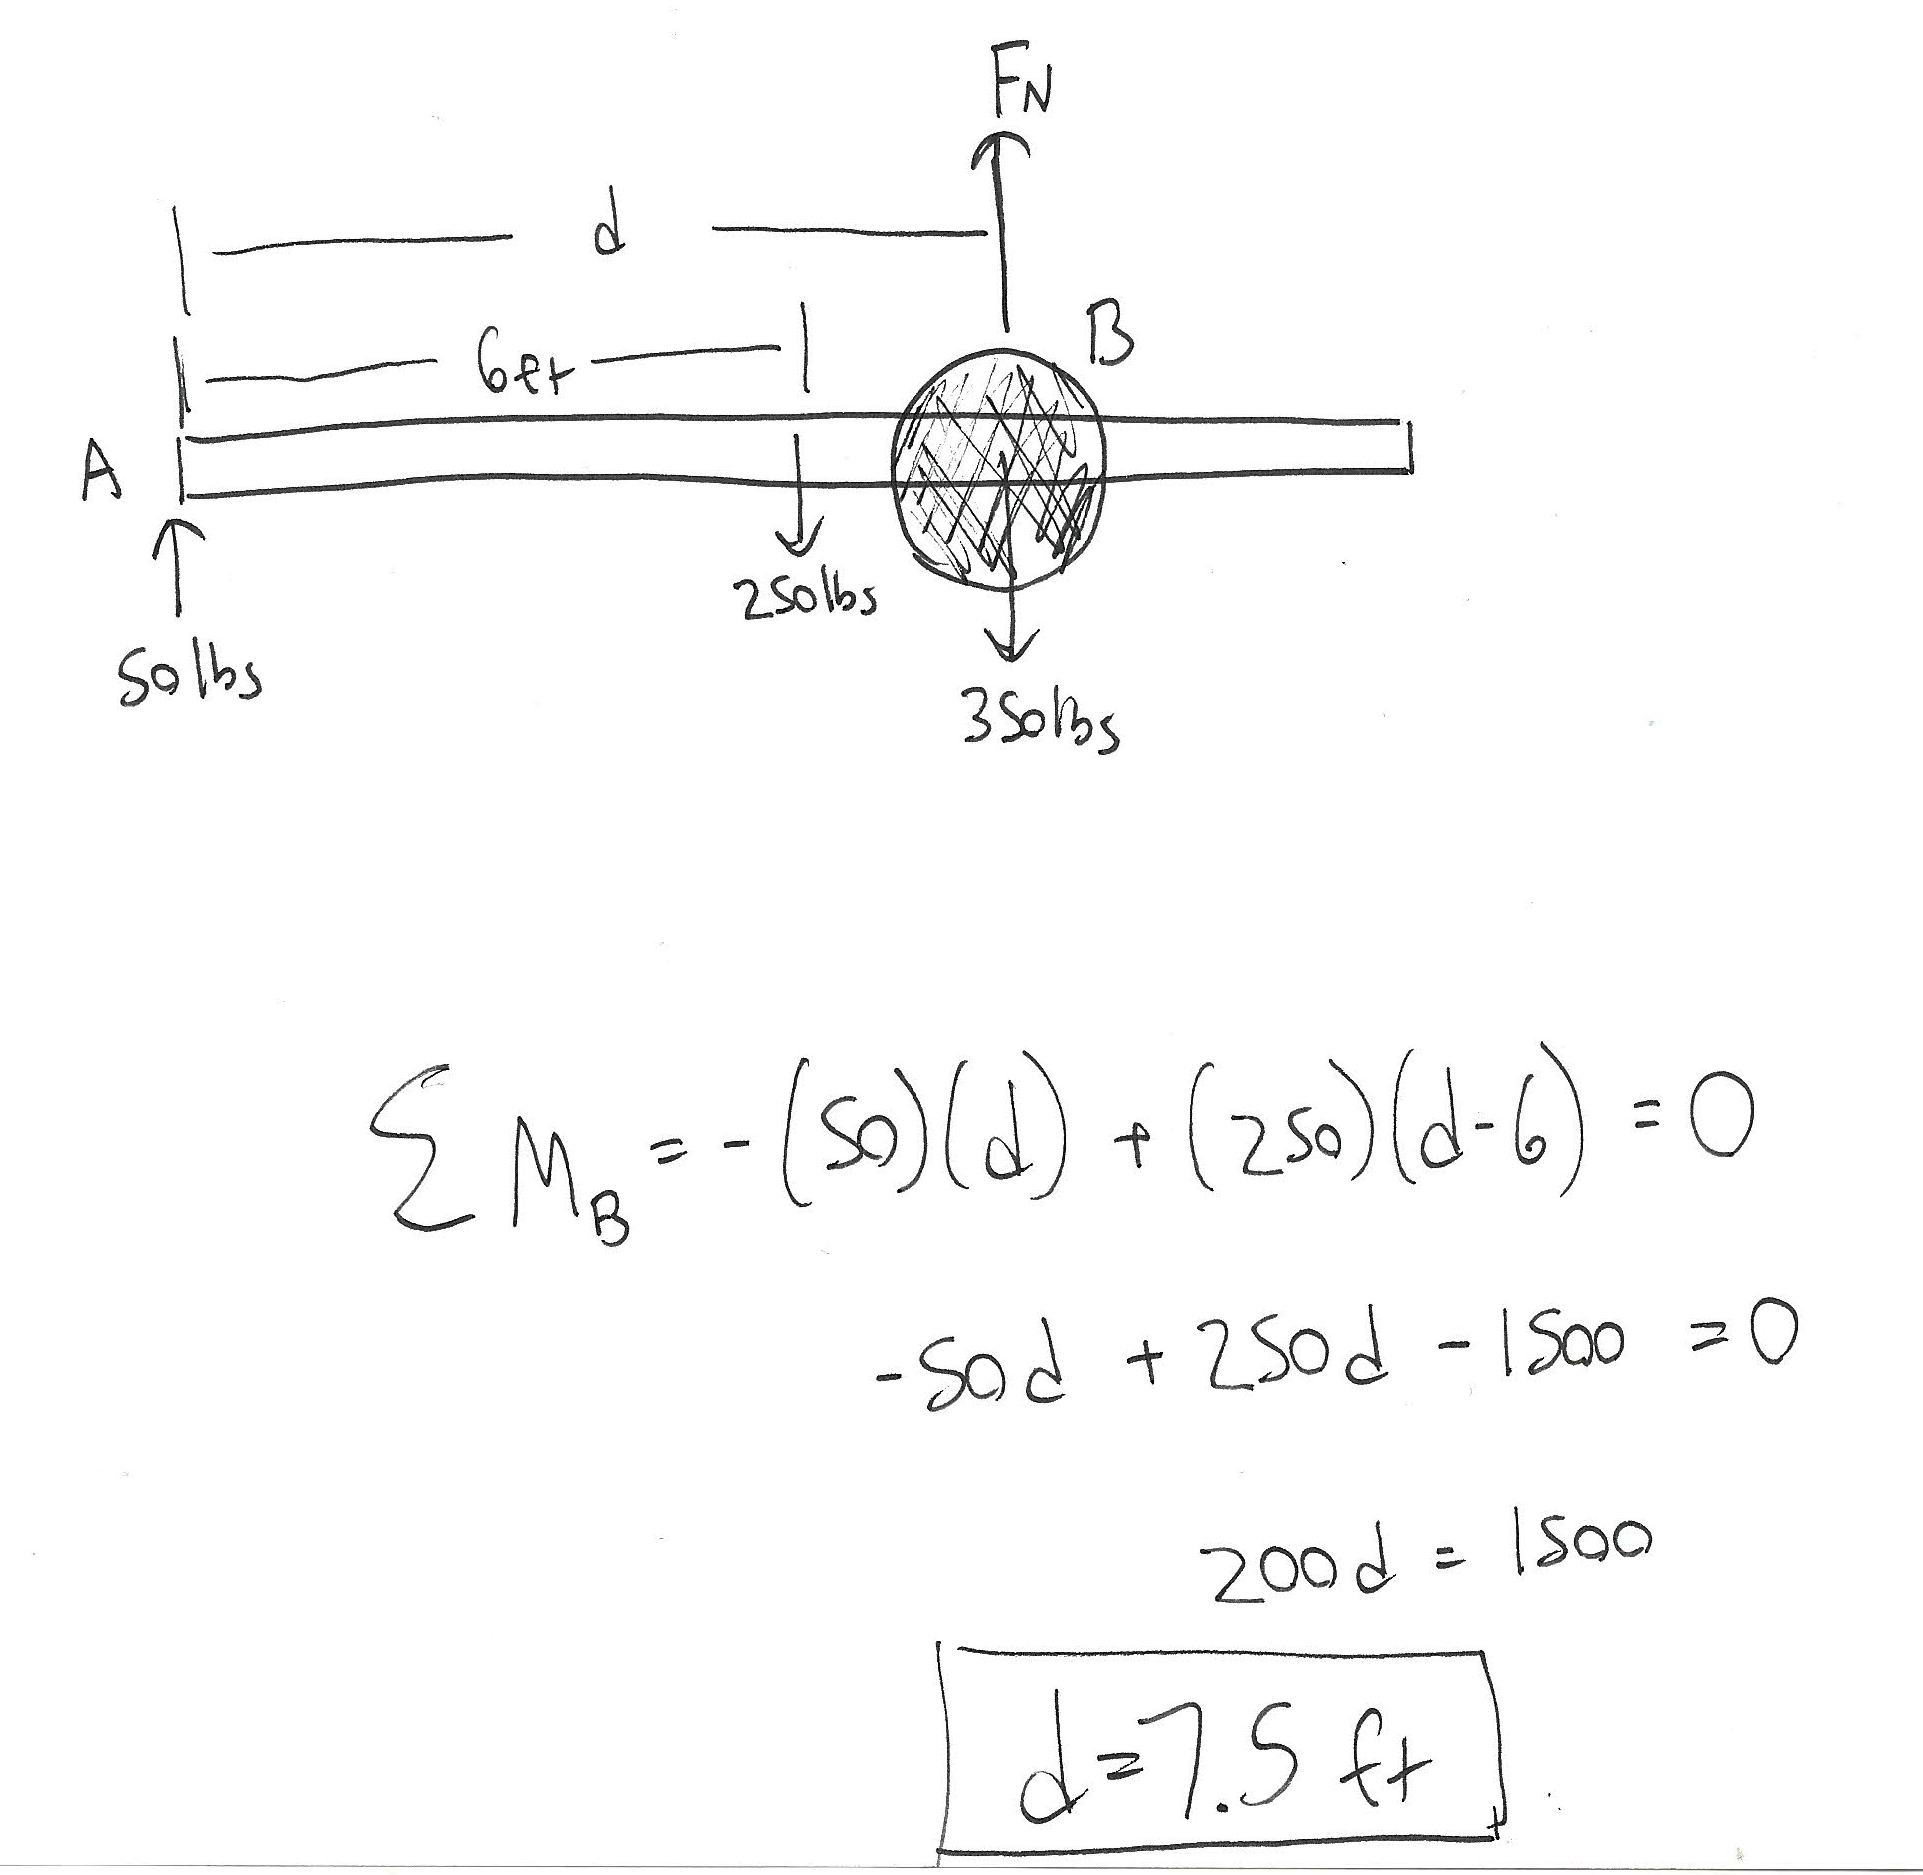 FN
d
6ft
B
A
250lbs
50lbs
350lbs
∑ MB = -(50)(d) + (250)(d-6) = 0
-50d + 250d - 1500 = 0
200d = 1500
d=7.5 ft